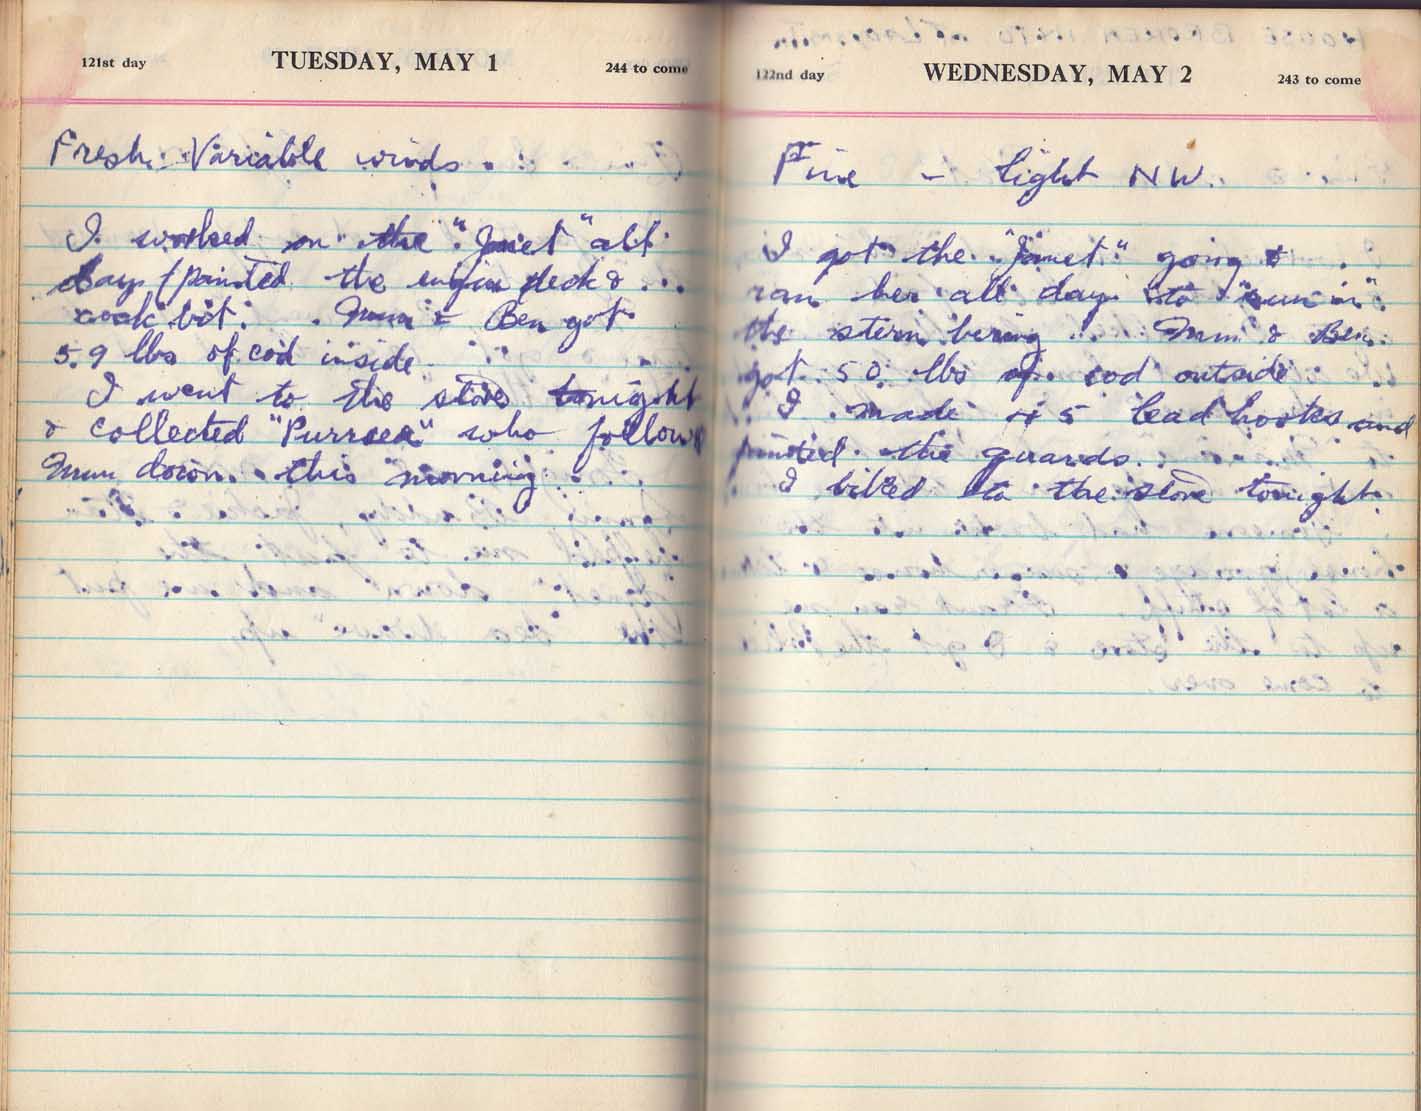 121st day TUESDAY, MAY 1 244 to come
Fresh - Variable winds.
I worked on the "Janet" all
day / painted the engine deck &
cock bit. Mum & Ben got
59 lbs of cod inside
I went to the store tonight
& collected "Purrcea" who follows
Mum down this morning
122nd day WEDNESDAY, MAY 2 243 to come
Fine - light NW.
I got the "Janet" going &
ran her all day to "run in"
the stern bering. Mum & Ben
got 50 lbs of cod outside
I made 45 lead hooks and
painted the guards.
I biked to the store tonight.